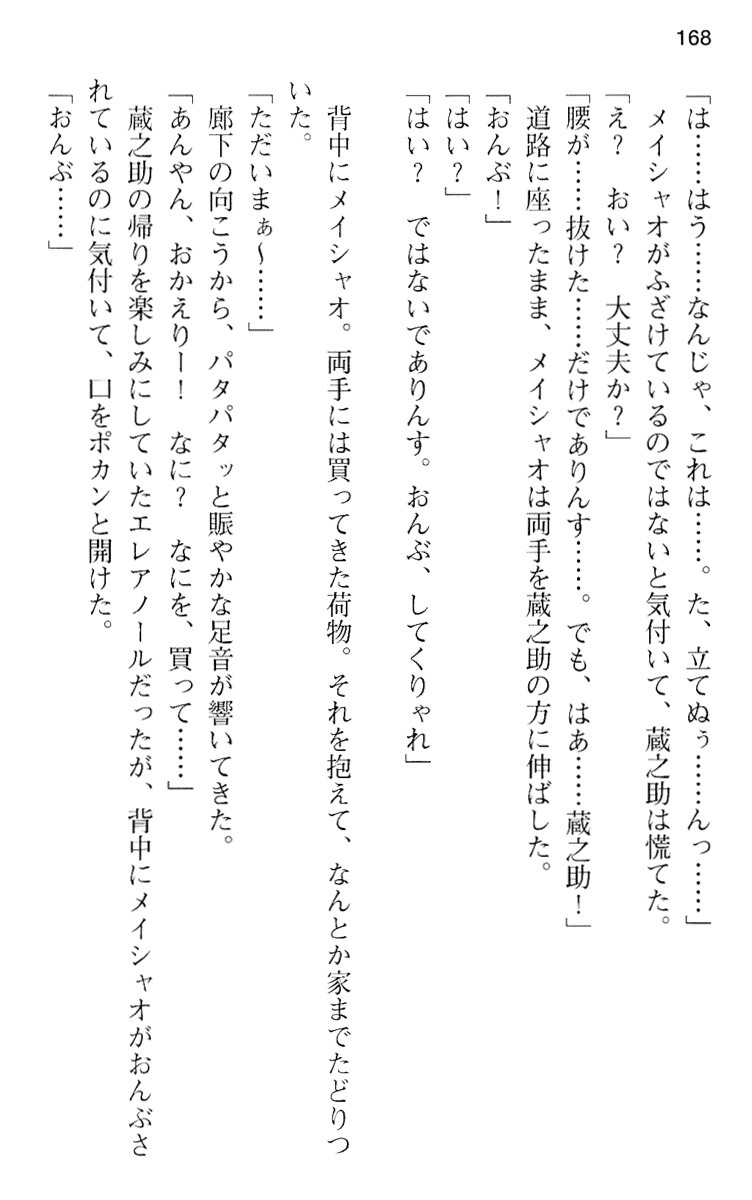 168
「は……はう……なんじゃ、これは……。た、立てぬぅ……んっ……」
メイシャオがふざけているのではないと気付いて、蔵之助は慌てた。
「え？　おい？　大丈夫か？」
「腰が……抜けた……だけでありんす……。でも、はぁ……蔵之助！」
道路に座ったまま、メイシャオは両手を蔵之助の方に伸ばした。
「おんぶ！」
「はい？」
「はい？　ではないでありんす。おんぶ、してくりゃれ」
背中にメイシャオ。両手には買ってきた荷物。それを抱えて、なんとか家までたどりつ
いた。
「ただいまぁ～……」
廊下の向こうから、パタパタッと賑やかな足音が響いてきた。
「あんやん、おかえりー！　なに？　なにを、買って……」
蔵之助の帰りを楽しみにしていたエレアノールだったが、背中にメイシャオがおんぶさ
れているのに気付いて、口をポカンと開けた。
「おんぶ……」